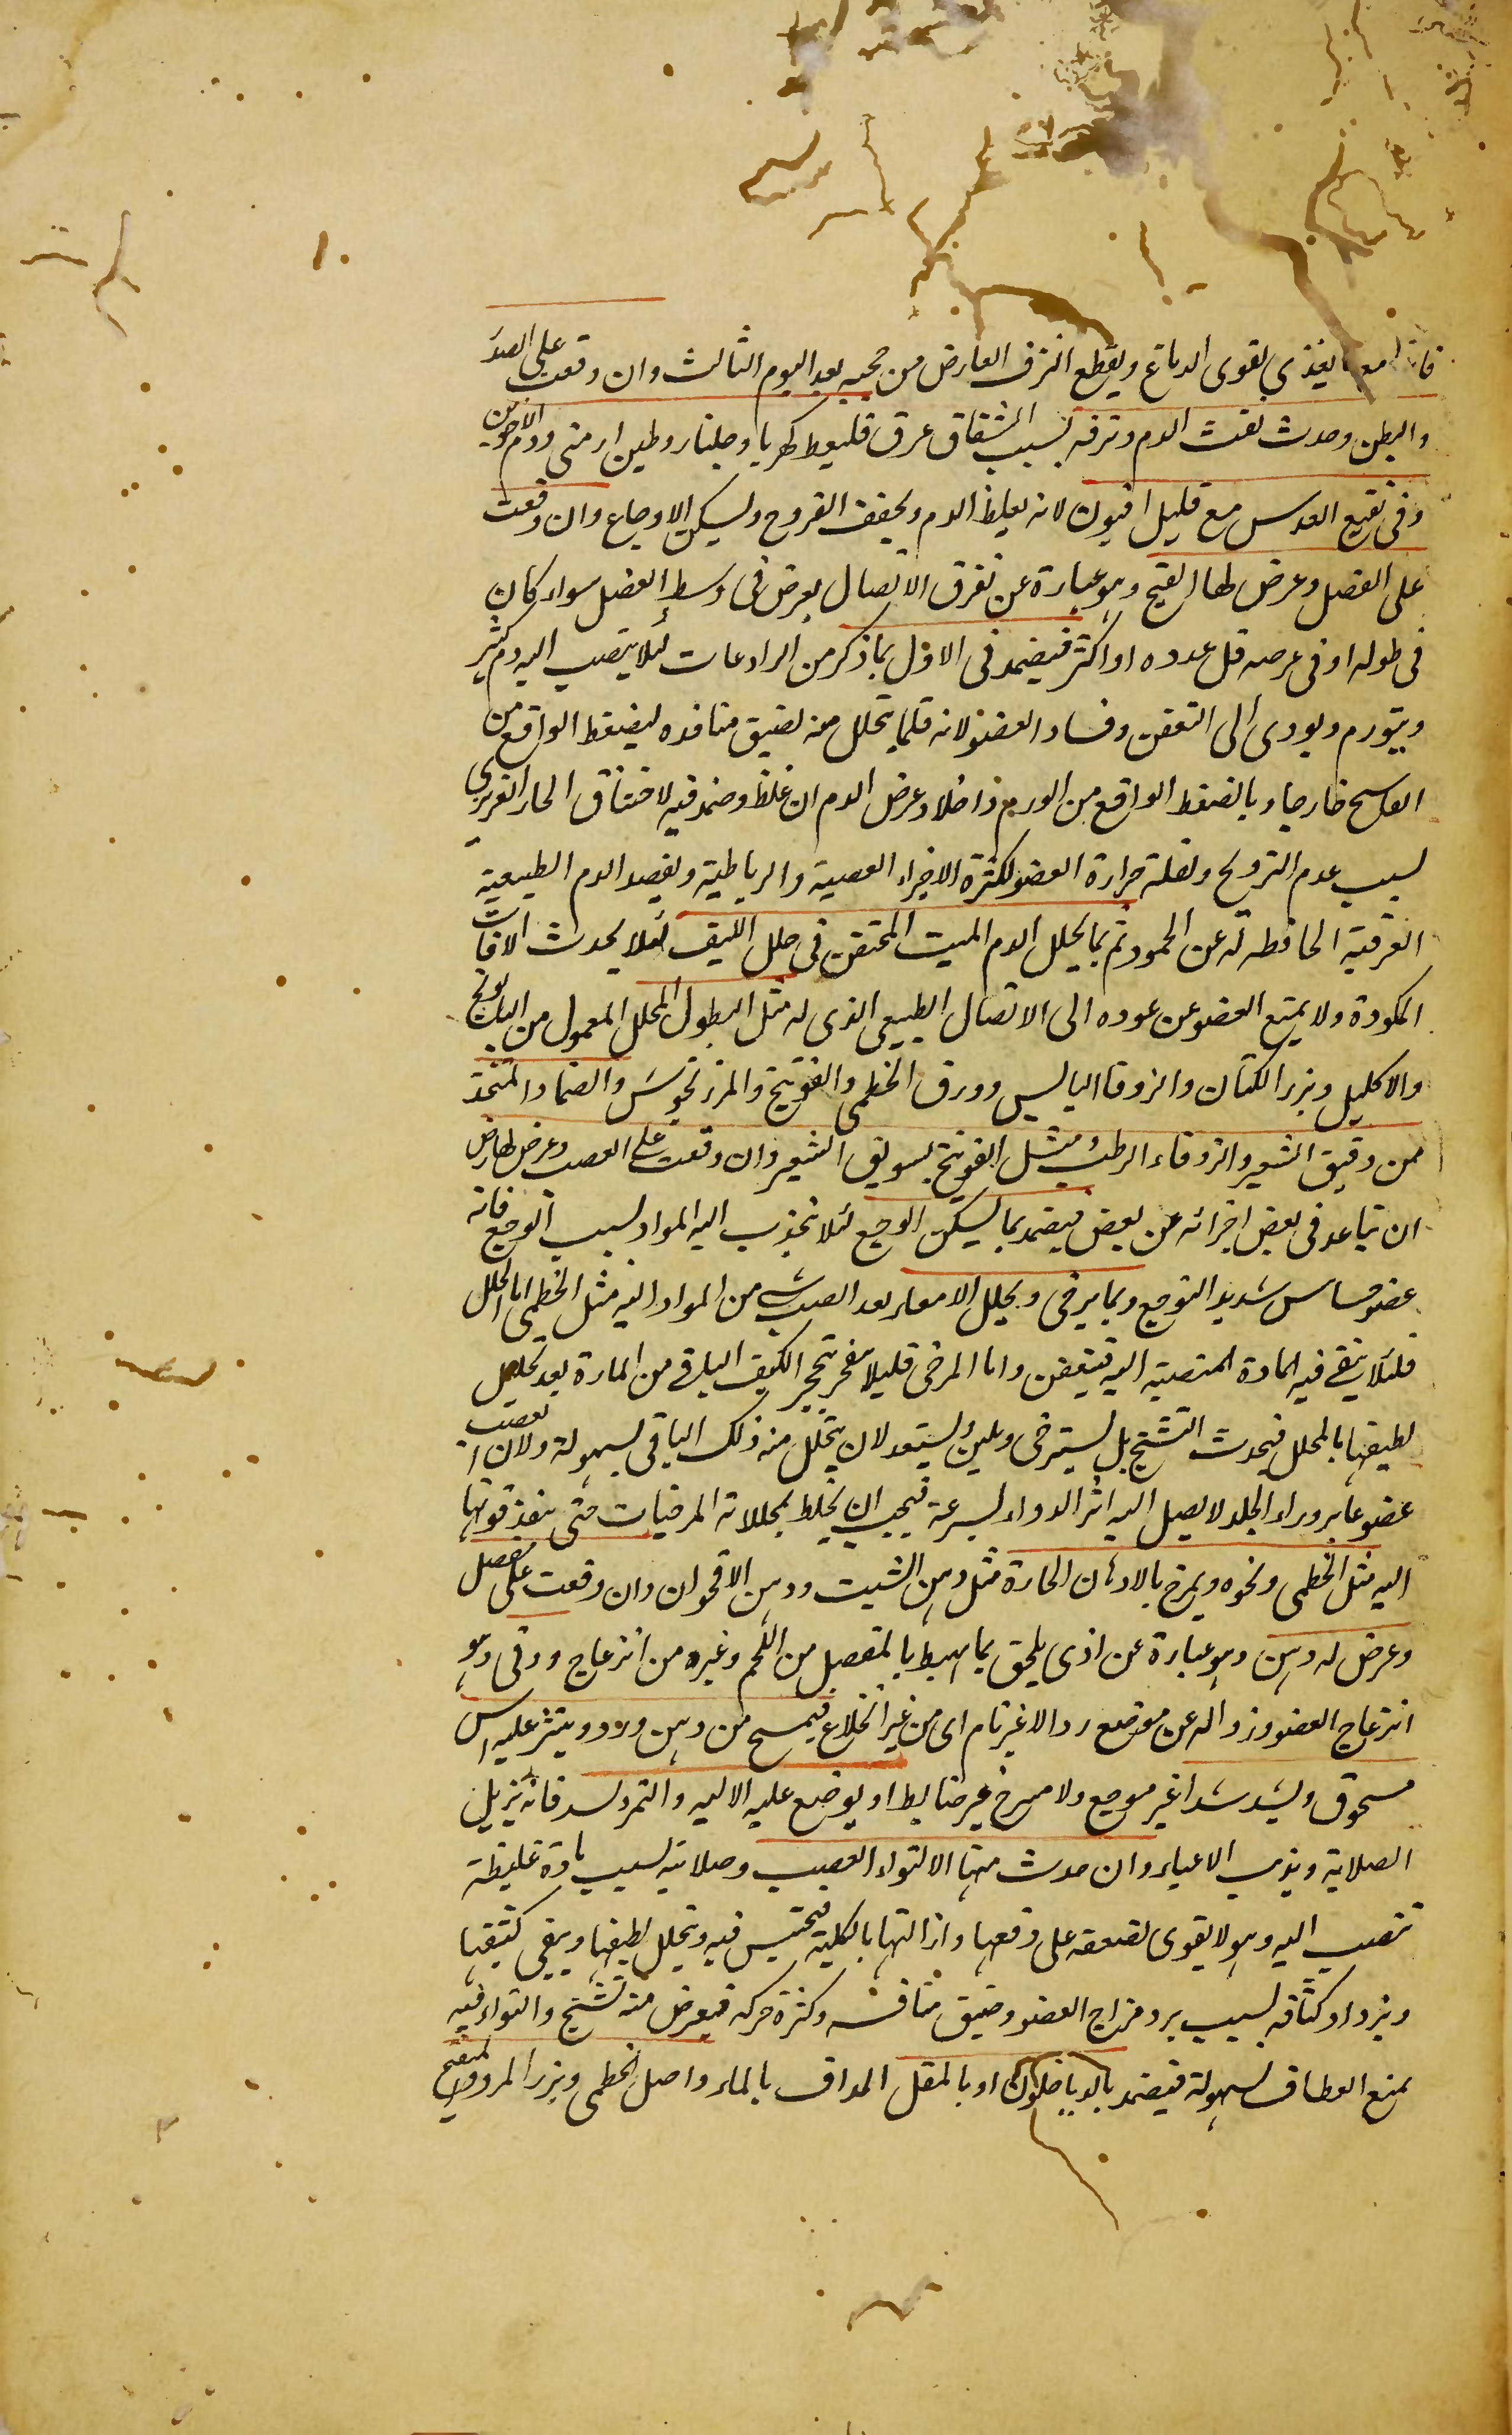 فانها مع ما يغذي يقوى الدماغ ويقطع النزف العارض من حجبه بعد اليوم الثالث وان وقعت على الصدر
والبطن وحدث نفث الدم ونزفه بسبب انشقاق عرق فليعط كهربا وجلنار وطين ارمنى ودم الاخوين
وفى نقيع العدس مع قليل افيون لانه يغلظ الدم ويجفف القروح ويسكن الاوجاع وان وقعت
على العضل وعرض لها الفسخ وهو عبارة عن تفرق الاتصال يعرض فى وسط العضل سواء كان
فى طوله او فى عرضه قل عدده او اكثر فيضمد فى الاول بما ذكر من الرادعات لئلا ينصب اليه دم كثير
ويتورم ويودى الى التعفن وفساد العضو لانه قلما يتحلل منه لضيق منافذه ليضغط الواقع من
الفاسخ خارجا وبالضغط الواقع من الورم داخلا وعرض الدم ان غلظ وضمد فيه لاختناق الحار الغريزي
بسبب عدم التروح ولقلة حرارة العضو لكثرة الاجزاء العصبية والرباطية وبفصد الدم الطبيعية
العرقية الحافظة له عن الجمود ثم بما يحلل الدم الميت المحتقن فى خلل الليف لئلا يحدث الافات
المذكورة ولا يمنع العضو عن عوده الى الاتصال الطبيعى الذى له مثل النطول المحلل المعمول من البابونج
والاكليل وبزر الكتان والزوفا اليابس وورق الخطمى والفوتنج والمرزنجوش والضماد المتخذ
من دقيق الشعير والزوفاء الرطب مثل الفوتنج بسويق الشعير وان وقعت على العصب وعرض لها رض
ان تباعد فى بعض اجزائه عن بعض فيضمد بما يسكن الوجع لئلا تجذب اليه المواد بسبب الوجع فانه
عضو حساس شديد التوجع وبما يرخى ويحلل الامعاء بعد الصب من المواد اليه مثل الخطمى اما المحلل
فلئلا يبقى فيه المادة المنصبة اليه فيتعفن واما المرخى فليلا يتحجر الكثيف الباقى من المادة بعد تحليل
لطيفها بالمحلل فيحدث التشنج بل يسترخى ويلين ويستعد لان يتحلل منه ذلك الباقى بسهولة ولان العصب
عضو غاير وراء الجلد لا يصل اليه اثر الدواء بسرعة فيجب ان يخلط بمحللاته المرخيات حتى ينفذ قوتها
اليه مثل الخطمى ونحوه ويمرخ بالادهان الحارة مثل دهن الشبت ودهن الاقحوان وان وقعت على مفصل
وعرض له وهن وهو عبارة عن اذى يلحق بما يحيط بالمفصل من اللحم وغيره من انزعاج ووثى وهو
انزعاج العضو وزواله عن موضعه زوالا غير تام اى من غير انخلاع فيمسح من دهن ورد وينثر عليه اس
مسحوق ويشد شدا غير موجع ولا مسرخ غير ضابط او يوضع عليه الاليه والتمر ليسد فانه يزيل
الصلابة ويذهب الاعياء وان حدث منها الالتواء العصب وصلابته بسبب مادة غليظة
تنصب اليه وهو لا يقوى لضعفه على دفعها وازالتها بالكلية فيحتبس فيه ويتحلل لطيفها ويبقى كثيفها
ويزداد كثافة بسبب برد مزاج العضو وضيق منافسه وكثرة حركه فيعرض منه تشنج والتواء فيه
يمنع انعطافه بسهولة فيضمد بالدياخلون او بالمقل المداف بالماء واصل الخطمى وبزر المرو المنقع